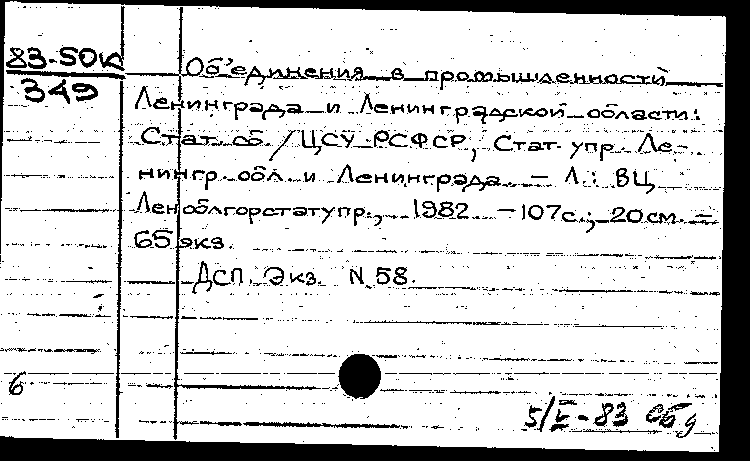 83-50к
349
Об'единения в промышленности
Ленинграда и Ленинградской области:
Стат. сб. / ЦСУ РСФСР, Стат. упр. Ле-
нингр. обл. и Ленинграда. – Л.: ВЦ
Леноблгорстатупр., 1982. – 107 с.; 20 см. –
65 экз.
ДСП. Экз. N 58.
6
5/V-83